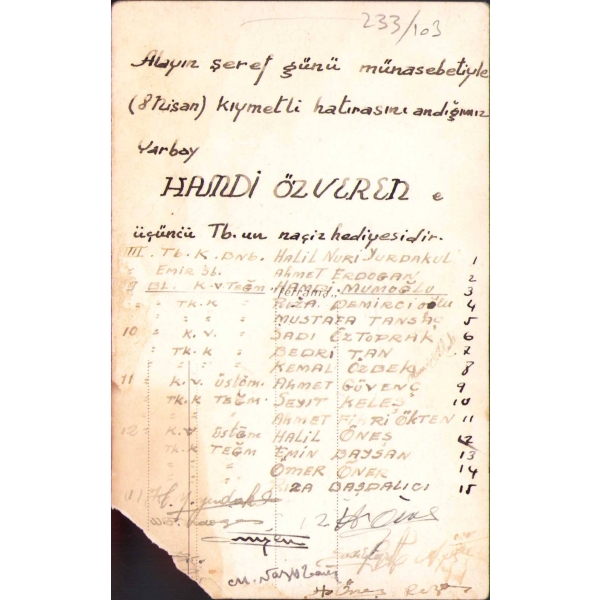 233/103
Alayın şeref günü münasebetiyle
(8 Nisan) kıymetli hatırasını andığımız
Yarbay
HAMDİ ÖZVEREN e
üçüncü Tb. un naçiz hediyesidir.
III. Tb. K. DNB. HALİL NURİ YURDAKUL 1
EMİR Sb. AHMET ERDOGAN 2
9 BL. K.V TEĞM. HAMDİ MUMOĞLU 3
" TK.K " RIZA DEMİRCİOĞLU 4
" " " MUSTAFA TANSAÇ 5
10 " K.V. " SADİ ÖZTOPRAK 6
" TK.K " BEDRİ TAN 7
" " " KEMAL ÖZBEK 8
11 " K.V. ÜSTĞM. AHMET GÜVENÇ 9
" TK.K TEĞM. SEYİT KELEŞ 10
" " " AHMET FİKRİ ÖKTEN 11
12 " K.V ÜSTĞM HALİL ÖNEŞ 12
" TK.K TEĞM EMİN BAYSAN 13
" " ÖMER ÖNER 14
" " RIZA BAŞDALICI 15
(1)
12